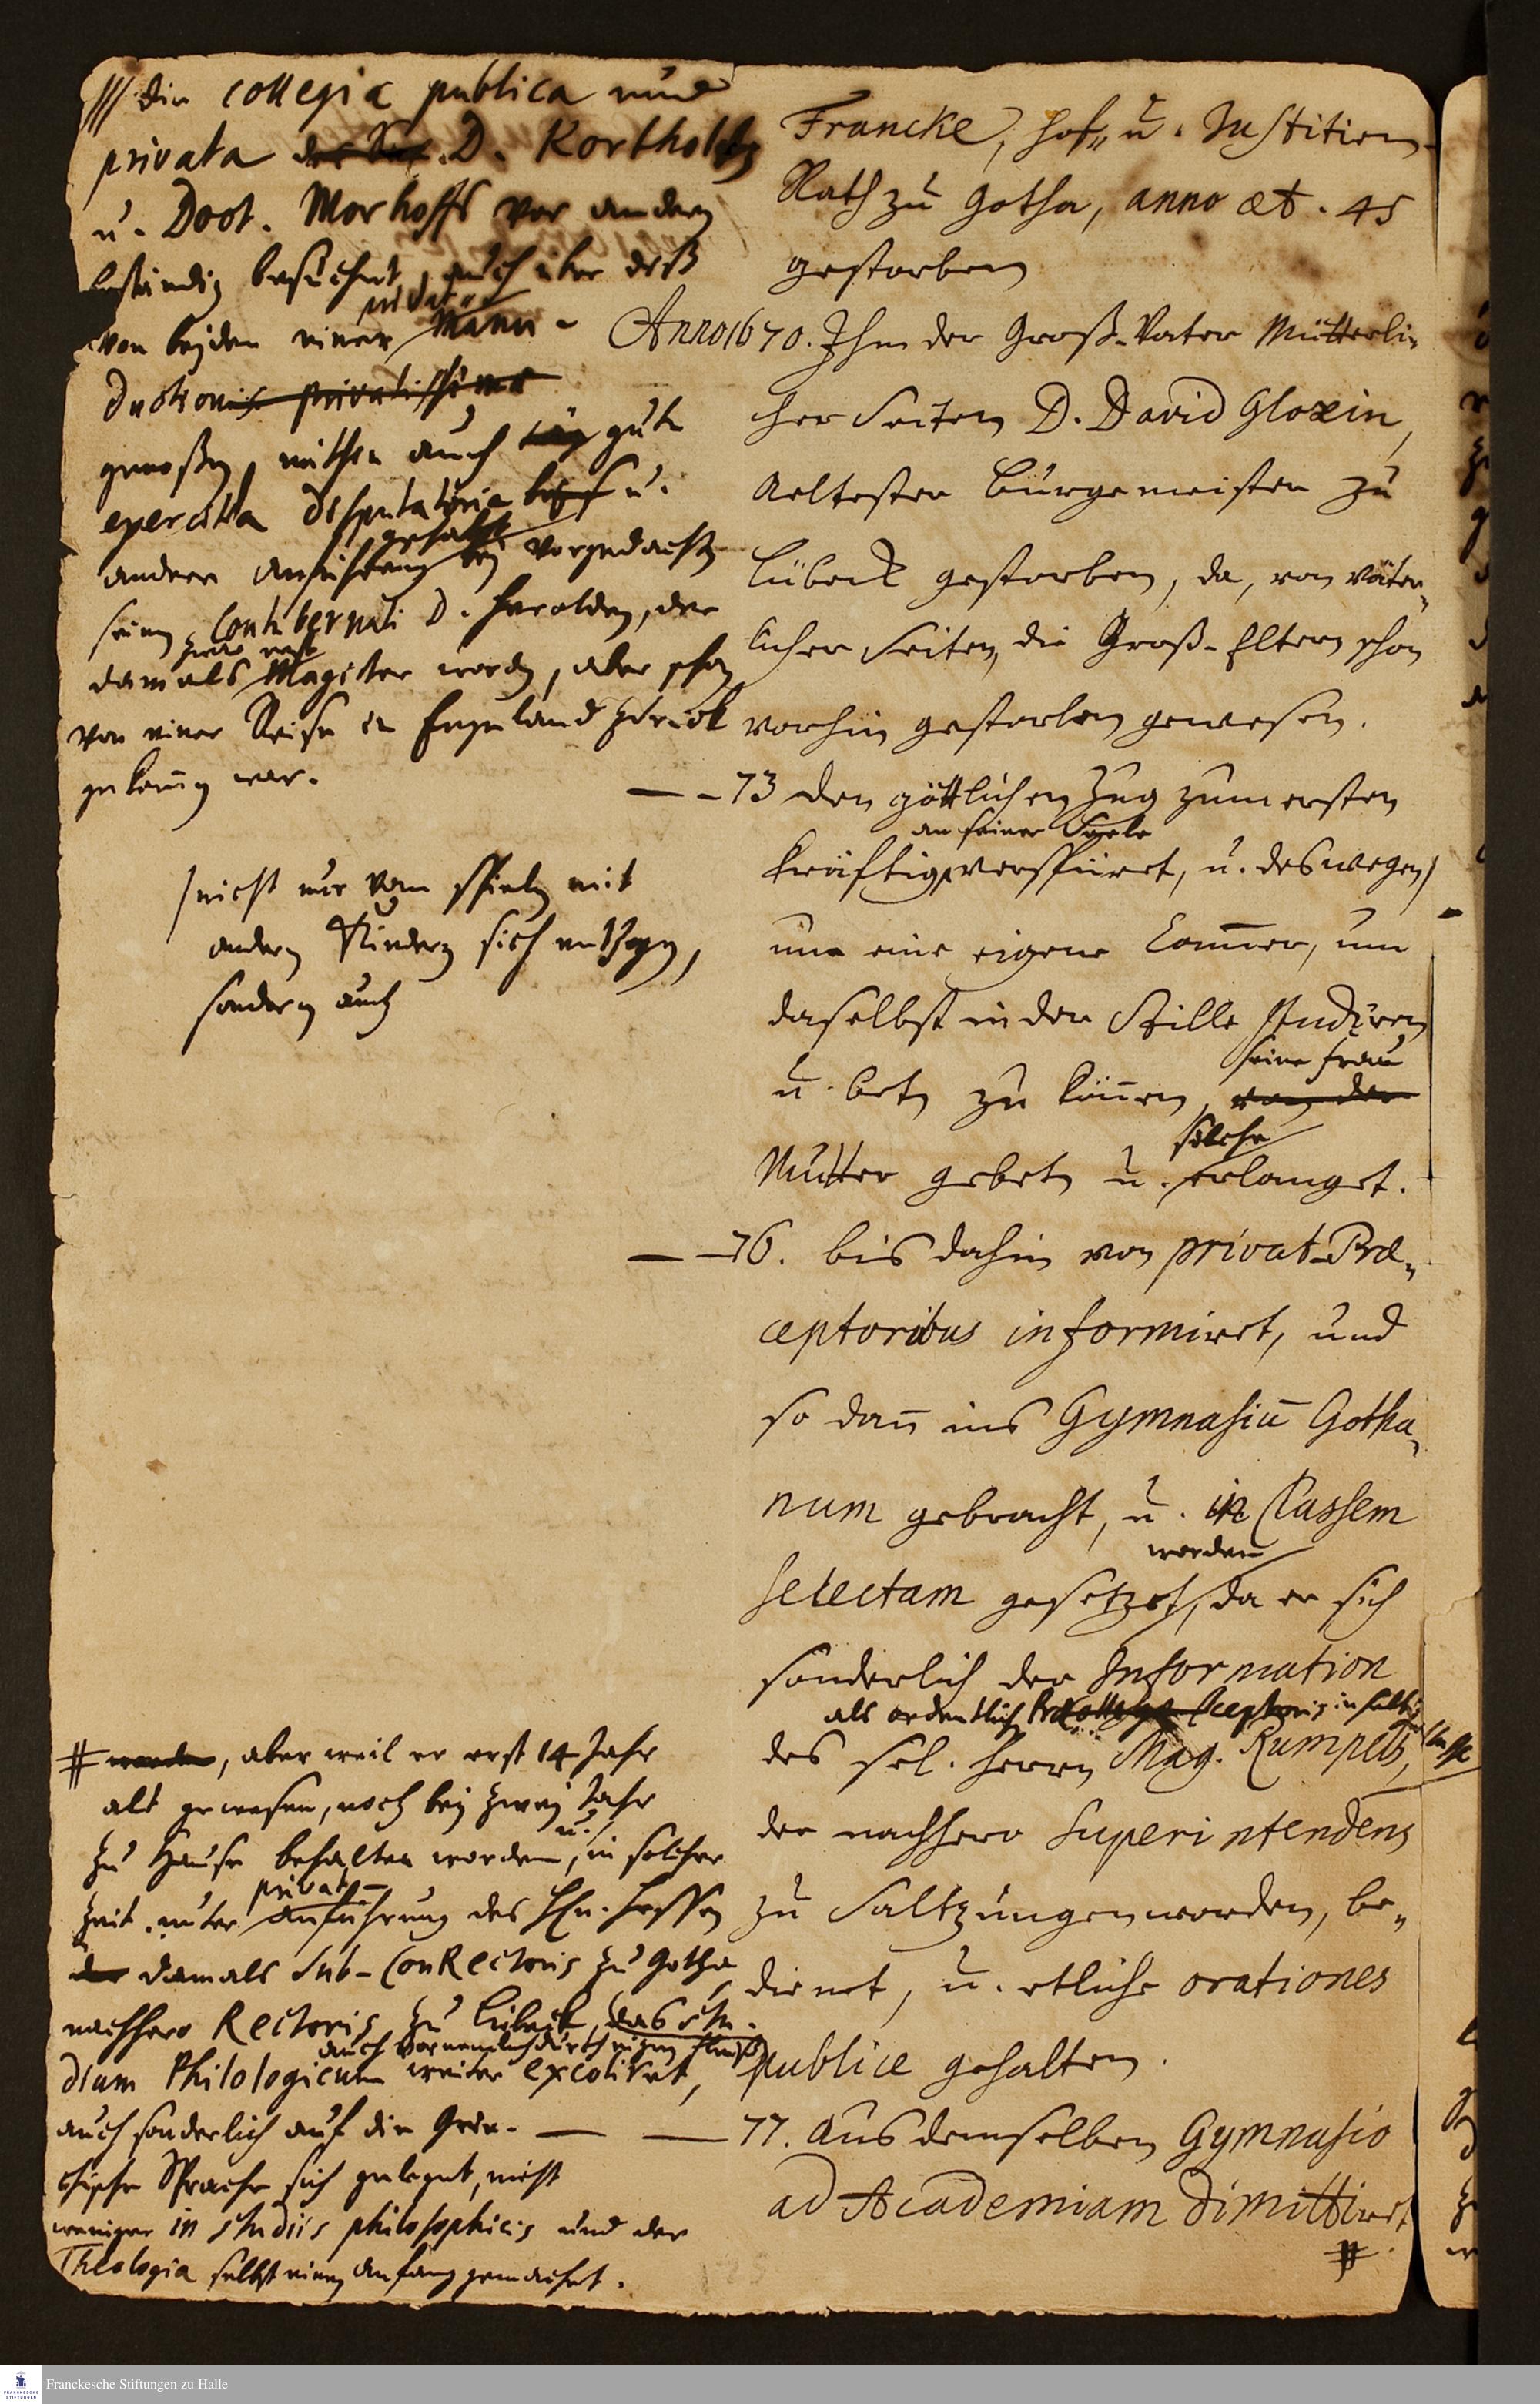 /// die collegia publica und
privata der D. Kortholts
u. Doct. Morhoffs vor andern
beständig besuchet, auch über diß
von beyden einer privat
Manu-
duction privatissime
genoßen, mithin auch gute
exercitia disputatoria u.
gehabt
andere anführung bey vorgedachtem
seinem Contubernali D. Herolden, der
zwar erst
damals Magister worden, aber schon
von einer Reise in Engeland zurück
gekomen war.
/ nicht nur vom spielen mit
andern Kindern sich entzogen,
sondern auch
# worden, aber weil er erst 14 Jahr
alt gewesen, noch bey zwey Jahr
u.
zu Hause behalten worden, in solcher
privat-
Zeit unter anführung des Hn. Hessen
der damals Sub-ConRectoris zu Gotha
nachhero Rectoris zu Lübeck, das stu-
auch vornemlich durch eigen fleiß
dium Philologicum weiter excoliret,
auch sonderlich auf die Grie-
chische Sprache sich geleget, nicht
weniger in studiis philosophicis und der
Theologia selbst einen anfang gemachet.
Francke, hof- u. Justitien-
Rath zu Gotha, anno æt. 45
gestorben
Anno 1670. Ihm der Groß-Vater Mütterli-
cher Seiten D. David Gloxin,
Aeltester Bürgemeister zu
Lübeck gestorben, da, von väter-
licher Seiten, die Groß-Eltern schon
vorhin gestorben gewesen.
— – 73 den göttlichen Zug zum ersten
an seiner Seele
kräftig verspüret, u. deswegen /
um eine eigene Cammer, um
daselbst in der Stille studiren
seine Frau
u. beten zu können, von der
solche
Mutter gebeten u. erlanget.
— — 76. bis dahin von privat-Præ-
ceptoribus informiret, und
so dann ins Gymnasiū Gotha-
num gebracht, u. in Classem
worden
selectam gesetzet, da er sich
sonderlich der Information
als ordentlich Præceptoris in selbiger Classe
des sel. Herrn Mag. Rumpels,
der nachhero Superintendens
zu Saltzungen worden, be-
dienet, u. etliche orationes
publice gehalten.
— — 77. aus demselben Gymnasio
ad Academiam dimittiret
#.
Franckesche Stiftungen zu Halle
FRANCKESCHE
STIFTUNGEN